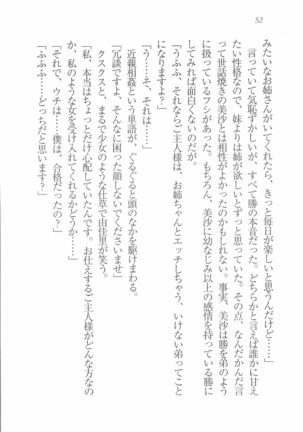 52
みたいなお姉さんがいてくれたら、きっと毎日が楽しいと思うんだけど……」
　言っていて気恥ずかしいが、すべて勝の本音だった。どちらかと言えば誰かに甘え
たい性格なので、妹よりは姉が欲しいとずっと思っていた。その点、なんだかんだ言
って世話焼きの美沙とは相性がよかったのかもしれない。事実、美沙は勝を弟のよう
に扱っているフシがあった。もちろん、美沙に幼なじみ以上の感情を持っている勝に
してみれば面白くないのだが。
「うふふ、それならご主人様は、お姉ちゃんとエッチしちゃう、いけない弟ってこと
になりますよ？」
「う？……そ、それは……」
　近親相姦という単語が、ぐるぐると頭のなかを駆けまわる。
「冗談ですよ。そんなに困った顔しないでくださいませ」
　クスクスと、まるで少女のような仕草で由佳里が笑う。
「私、本当はちょっとだけ心配していたんです。お仕えするご主人様がどんな方なの
か、私のような女を受け入れてくれるかどうか……」
「それで、ウチは……僕は、合格だったの？」
「ふふふ……どっちだと思います？」